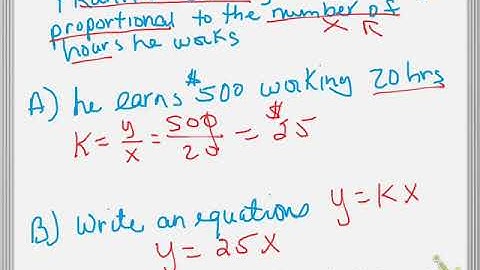 proportional to the number of
hours he works
x
A) he earns $500 working 20 hrs
K = y/x = 500/20 = $25
B) Write an equations y = KX
y = 25X